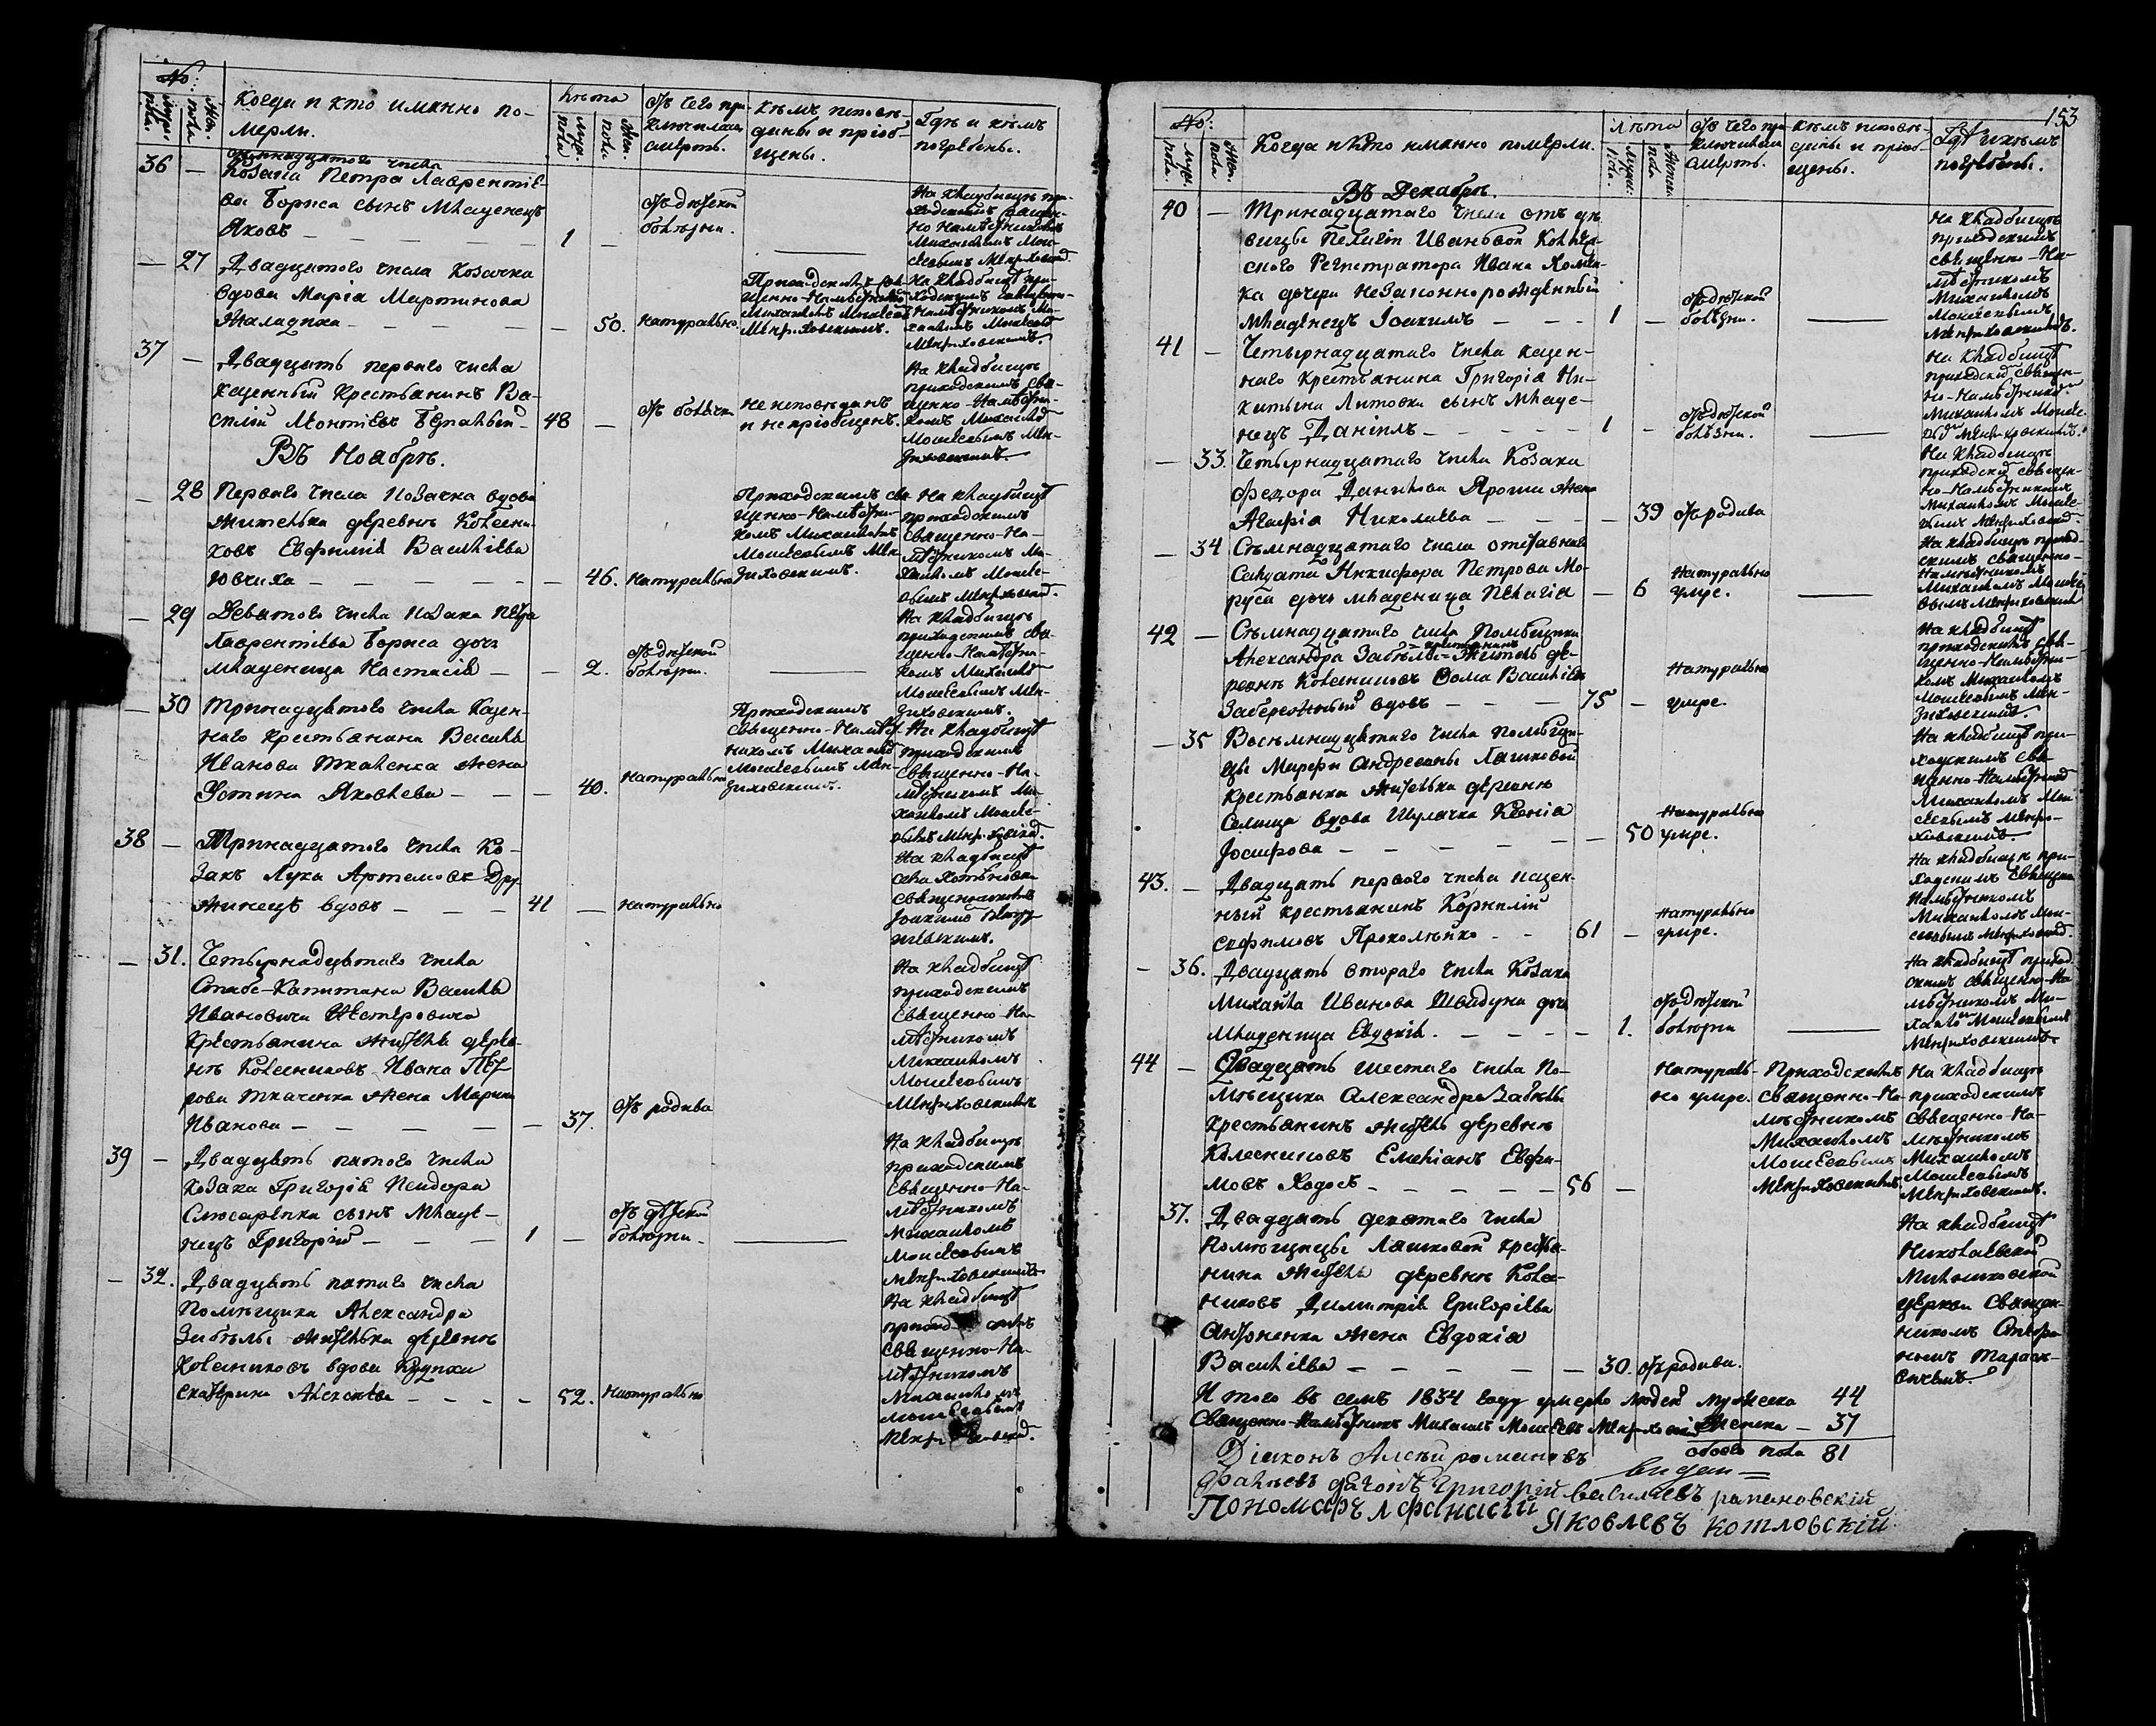 №:
Муж. пола.
Жен. пола
Когда и кто именно по-
мерли.
Лѣта
Муж. пола
Жен. пола
Отъ чего при-
ключилась
смерть.
Кѣмъ исповѣ-
даны и пріоб-
щены.
Гдѣ и кѣмъ
погребены.
36 —
Козака Петра Лаврентіе-
ва Бориса сынъ младенецъ
Яковъ — — — — — 1 —
Отъ дѣтской
болѣзни.
На кладбищѣ при-
ходскимъ священ-
но-Намѣстникомъ
Михаиломъ Мои-
сеевымъ
— 27
Двадцатого числа козачка
вдова Марія Мартинова
— — — — 50. Натурально.
Приходскимъ свя-
щенно-Намѣстнико
Михаиломъ Моисеев
На кладбищѣ при-
ходскимъ священно-
Намѣстникомъ Ми-
хаиломъ Моисеев
37 —
Двадцать первого числа
казенный крестьянинъ Ва-
силій Леонтіевъ — 48 —
не исповѣданъ
и не пріобщенъ.
На кладбищѣ
приходскимъ свя-
щенно-Намѣстни-
комъ Михаило
Моисеевымъ
Въ Ноябрѣ.
— 28
Первого числа козачка вдова
жителька деревнѣ Колесни-
ковъ Евфимія Василіева
— — — — — — 46. Натурально
Приходскимъ свя-
щенно-Намѣстни-
комъ Михаиломъ
Моисеевымъ
На кладбищѣ
приходскимъ
священно-На-
мѣстникомъ Ми-
хаиломъ Моисе-
евымъ
— 29
Девятого числа козака Петра
Лаврентіева Бориса дочь
младеница Настасія — — 2.
Отъ дѣтской
болѣзни.
На кладбищѣ
приходскимъ свя-
щенно-Намѣстни-
комъ Михаило
Моисеевымъ
— 30
Тринадцятого числа казен-
ного крестьянина Василія
Иванова Ткаченка жена
Устина Яковлева — — — 40. Натурально
Приходскимъ
священно-Намѣст-
никомъ Михаило
Моисеевымъ
На кладбищѣ
приходскимъ
священно-На-
мѣстникомъ Ми-
хаиломъ Моисе-
евымъ
38 —
Тринадцатого числа ко-
закъ Лука Артемовъ Дру-
жинецъ вдовъ — — — 41 — Натурально
На кладбищѣ
села
священникомъ
Іоакимо
— 31.
Четырнадцятого числа
Стабс-Капитана Василія
Ивановича
крестьянина жителя дерев-
нѣ Колесниковъ Ивана Пет-
рова Ткаченка жена Марина
Иванова — — — — — 37. Отъ родива
На кладбищѣ
приходскимъ
священно-На-
мѣстникомъ
Михаиломъ
Моисеевымъ
39 —
Двадцять пятого числа
козака Григорія
Слюсаренка сынъ младе-
нецъ Григорій — — — 1 —
Отъ дѣтской
болѣзни.
На кладбищѣ
приходскимъ
священно-На-
мѣстникомъ
Михаиломъ
Моисеевымъ
— 32.
Двадцять пятого числа
помѣщика Александра
Забѣлы жителька деревнѣ
Колесниковъ вдова
Екатерина Алексѣева — — — — 52. Натурально
На кладбищѣ
священно-На-
мѣстникомъ
Михаиломъ
153
№:
Муж. пола.
Жен. пола
Когда и кто именно померли.
Лѣта
Муж. пола.
Женс. пола
Отъ чего при-
ключилась
смерть.
Кѣмъ исповѣ-
даны и пріоб-
щены.
Гдѣ и кѣмъ
погребены.
Въ Декабрѣ.
40 —
Тринадцатого числа отъ дѣ-
вицы Пелагіи Ивановой Коллеж-
ского Регистратора Ивана Хомен-
ка дочери незаконнорожденный
младенецъ Іоакимъ — — — 1 —
Отъ дѣтской
болѣзни.
На кладбищѣ
приходскимъ
священно-На-
мѣстникомъ
Михаиломъ
Моисеевымъ
41 —
Четырнадцатого числа казен-
ного крестьянина Григорія Ни-
китина Литовки сынъ младе-
нецъ Даніилъ — — — — — 1 —
Отъ дѣтской
болѣзни.
На кладбищѣ
приходски священ-
но-Намѣстнико
Михаиломъ Моисе-
— 33.
Четырнадцатого числа козака
Федора Данилова Яроши жена
Агафія Николаева — — — — 39 Отъ родива
На кладбищѣ
приходски священ-
но-Намѣстникомъ
Михаиломъ Моисе-
евымъ
— 34
Семнадцатого числа отставного
Салдата Никифора Петрова Мо-
руса дочь младеница Пелагія — 6
Натурально
умре.
На кладбищѣ приход-
скимъ священно-
Намѣстникомъ
Михаиломъ Моисе-
евымъ
42 —
Семнадцатого числа помѣщика
Александра Забѣлы крестьянинъ житель де-
ревнѣ Колесниковъ Фома Василіевъ
Забережный вдовъ — — — 75 —
Натурально
умре.
На кладбищѣ
приходскимъ свя-
щенно-Намѣстни-
комъ Михаиломъ
Моисеевымъ
— 35
Восьмнадцятого числа помѣщи-
цы Марфи Андреевны Лашковой
крестьянка жителька деревнѣ
Селища вдова Шулячка Ксенія
Іосифова — — — — — — 50
Натурально
умре.
На кладбищѣ при-
ходскимъ свя-
щенно-Намѣстнико
Михаиломъ Мои-
сеевымъ
43. —
Двадцать первого числа казен-
ный крестьянинъ Корнилій
Прокопѣнко — — 61 —
Натурально
умре.
На кладбищѣ при-
ходскимъ священно
Намѣстникомъ
Михаиломъ Мои-
сеевымъ
— 36.
Двадцать второго числа козака
Михайла Иванова Швидуна дочь
младеница Евдокія. — — — — 1.
Отъ дѣтской
болѣзни
На кладбищѣ приход
скимъ священно-На-
мѣстникомъ Ми-
хаило Моисеевымъ
44 —
Двадцать шестаго числа по-
мѣщика Александра Забѣлы
крестьянинъ житель деревнѣ
Колесниковъ Емеліанъ Евфи-
мовъ Ходосъ — — — — — 56 —
Натураль-
но умре.
Приходскимъ
священно-На-
мѣстникомъ
Михаиломъ
Моисеевымъ
На кладбищѣ
приходскимъ
священно-На-
мѣстникомъ
Михаиломъ
Моисеевымъ
37.
Двадцать девятаго числа
помѣщицы Лашковой крестья-
нина жителя деревнѣ Колес-
никовъ Димитрія Григоріева
Антоненка жена Евдокія
Василіева — — — — — — 30. Отъ родива.
На кладбищѣ
Николаевской
церкви священ-
никомъ
И того въ семъ 1834 году умерло людей мужеска 44
Священно-Намѣстникъ Михаилъ Моисеевъ
Женска — 37
обоего пола 81
Діаконъ Алсѣй романовъ
Григорій василиевъ
Пономаръ Афанасій
Яковлевъ котловскій